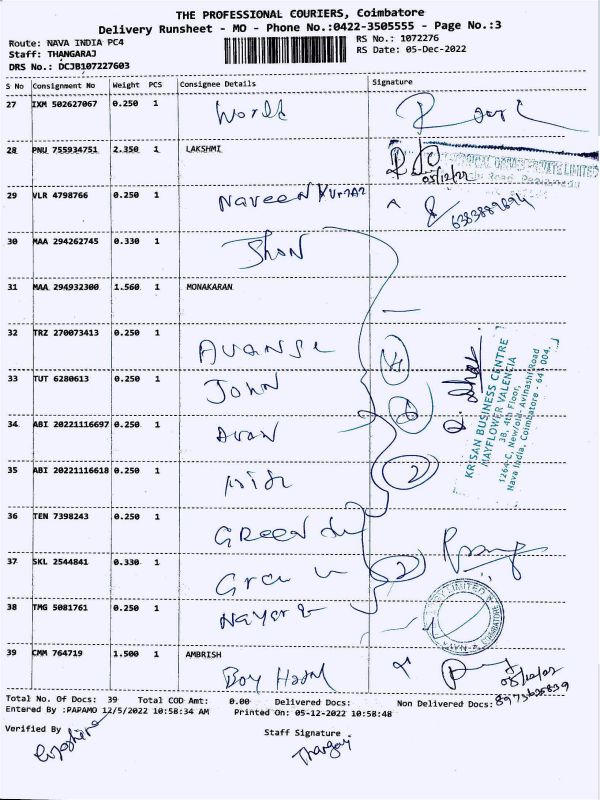 THE PROFESSIONAL COURIERS, Coimbatore
Delivery Runsheet - MO - Phone No.:0422-3505555 - Page No.:3
Route: NAVA INDIA PC4
RS No.: 1072276
Staff: THANGARAJ
RS Date: 05-Dec-2022
DRS No.: DCJB107227603
S No Consignment No Weight PCS Consignee Details Signature
27 IXM 502627067 0.250 1 World
28 PNU 755934751 2.350 1 LAKSHMI
05/12/22
29 VLR 4798766 0.250 1 Naveen Kumar
6383889694
30 MAA 294262745 0.330 1 Jhon
31 MAA 294932300 1.560 1 MONAKARAN
32 TRZ 270073413 0.250 1 Avanse
33 TUT 6280613 0.250 1 John
34 ABI 20221116697 0.250 1
35 ABI 20221116618 0.250 1
2
KRISAN BUSINESS CENTRE
MAYFLOWER VALENCIA
3B, 4th Floor,
1264-C, New/old- Avinashi Road
Nava India, Coimbatore - 641 004.
36 TEN 7398243 0.250 1 Green
37 SKL 2544841 0.330 1
2
38 TMG 5081761 0.250 1
LIMITED
COIMBATORE
39 CMM 764719 1.500 1 AMBRISH
Boy
Total No. Of Docs: 39 Total COD Amt: 0.00 Delivered Docs: Non Delivered Docs:
Entered By :PAPAMO 12/5/2022 10:58:34 AM Printed On: 05-12-2022 10:58:48
Verified By
Staff Signature
Thangaraj